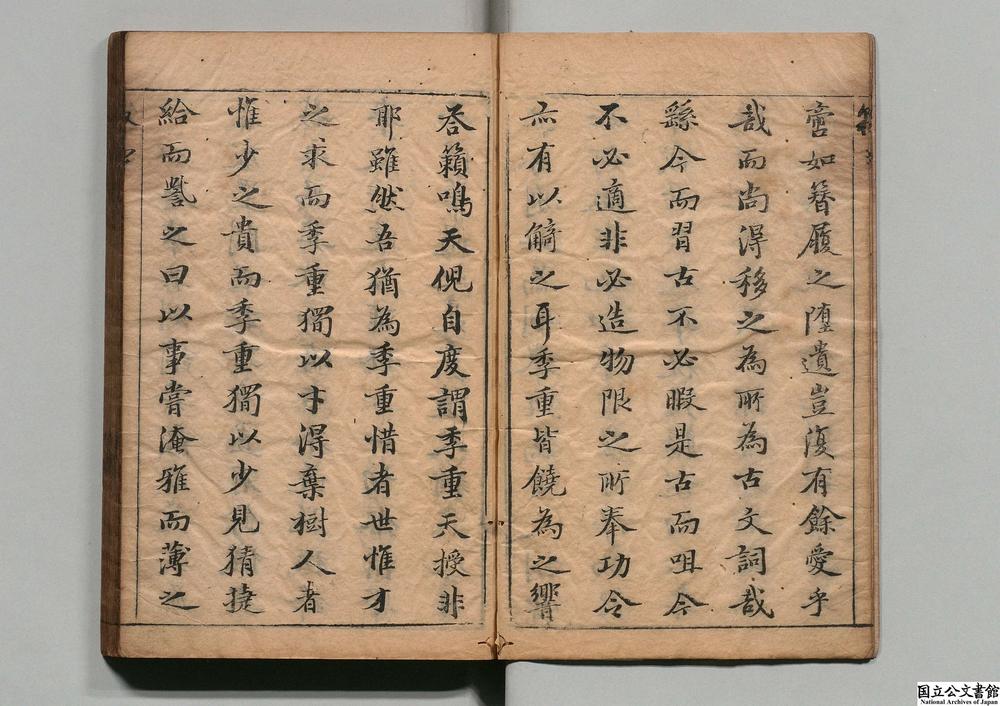 啻如簪履之墮遺豈復有餘愛乎
哉而尚得移之為所為古文詞哉
繇今而習古不必暇是古而咀今
不必適非必造物限之所奉功令
亦有以觭之耳季重皆饒為之響
荅籟鳴天倪自度謂季重天授非
耶雖然吾猶為季重惜者世惟才
之求而季重獨以才得棄樹人者
惟少之貴而季重獨以少見猜捷
給而甞之曰以事嘗淹雅而薄之
国立公文書館
National Archives of Japan